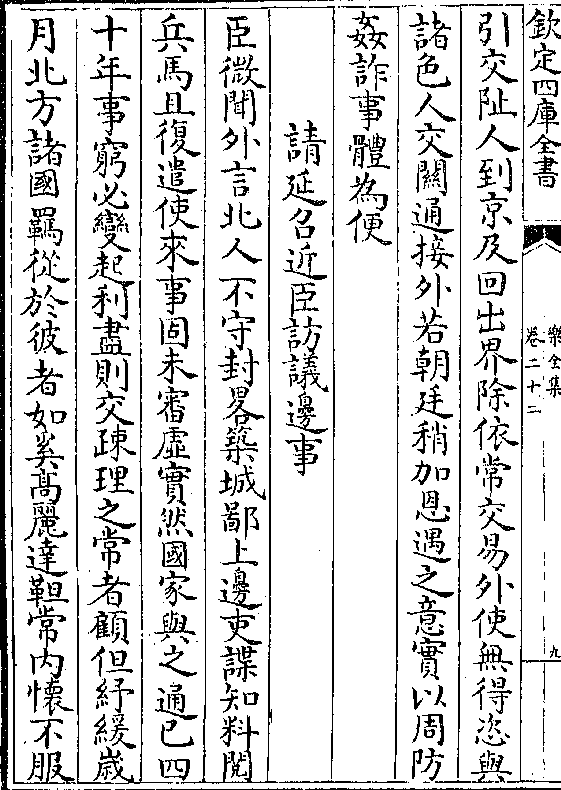 欽定四庫全書
樂全集
卷二十二
九
引交阯人到京及回出界除依常交易外使無得恣與
諸色人交關通接外若朝廷稍加恩遇之意實以周防
姦詐事體為便
請延召近臣訪議邊事
臣微聞外言北人不守封畧築城鄙上邊吏諜知料閱
兵馬且復遣使來事固未審虛實然國家與之通已四
十年事窮必變起利盡則交疎理之常者顧但紓緩歲
月北方諸國羈從於彼者如奚髙麗達靼常内懷不服